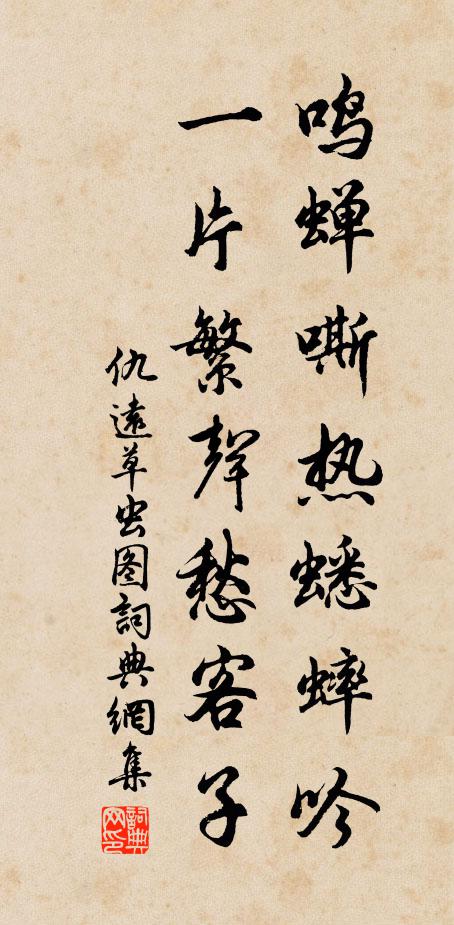 鸣蝉嘶热蟋蟀吟
一片繁聲愁客子
仇遠草虫图詞典網集
詞典网印